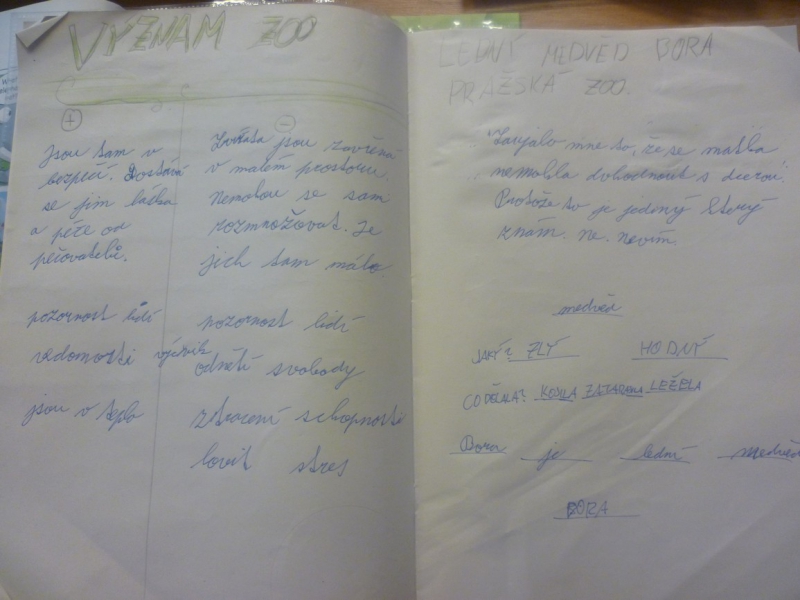 VÝZNAM ZOO
+
Jsou tam v
bezpečí. Dostává
se jim láska
a péče od
pečovatelů.
pozornost lidí
vedomosti výcvik
jsou v teple
-
Zvířata jsou zavřená
v malém prostoru.
Nemohou se sami
rozmnožovat. Je
jich tam málo.
pozornost lidí
odnětí svobody
ztracení schopnosti
lovit stres
LEDNÍ MEDVĚD BORA
PRAŽSKÁ ZOO.
Zaujalo mne to, že se matka
nemohla dohodnout s dcerou.
Protože to je jediný který
znám. ne. nevím.
medvěd
JAKÝ? ZLÝ HODNÝ
CO DĚLALA? LEŽELA
Bora je lední medvěd
BORA